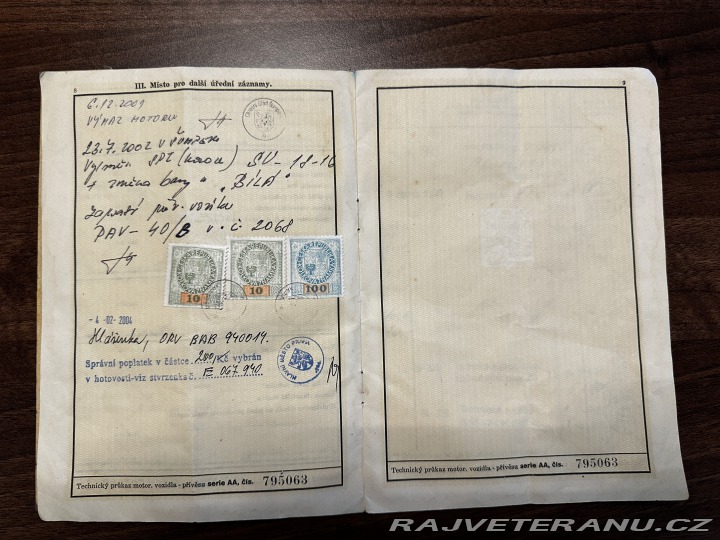 8
III. Místo pro další úřední záznamy.
6.12.2001
VÝMAZ MOTORU
23.7.2002 V
SPZ (
+ změna barvy " BÍLÁ "
PAV - 40/B v.č. 2068
10
10
100
- 4 -02- 2004
ORV BAB 940014.
Správní poplatek v částce 200,- Kč vybrán
v hotovosti-viz stvrzenka č. E 067 940.
HLAVNÍ MĚSTO PRAHA
Technický průkaz motor. vozidla - přívěsu serie AA, čís. 795063
9
Technický průkaz motor. vozidla - přívěsu serie AA, čís. 795063
RAJVETERANU.CZ